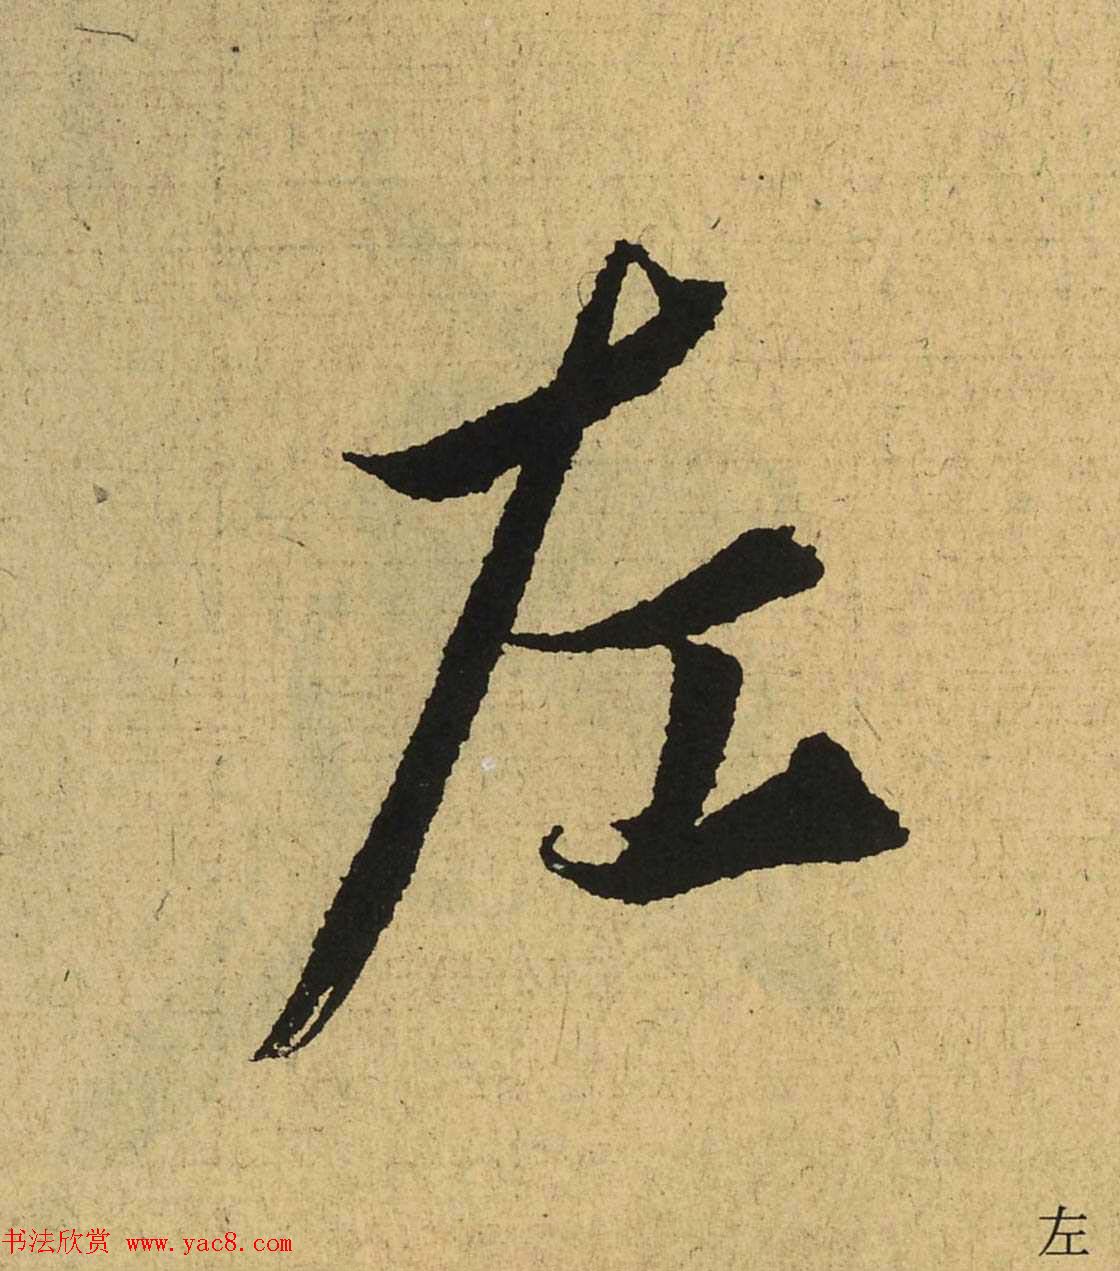 左
左
书法欣赏 www.yac8.com